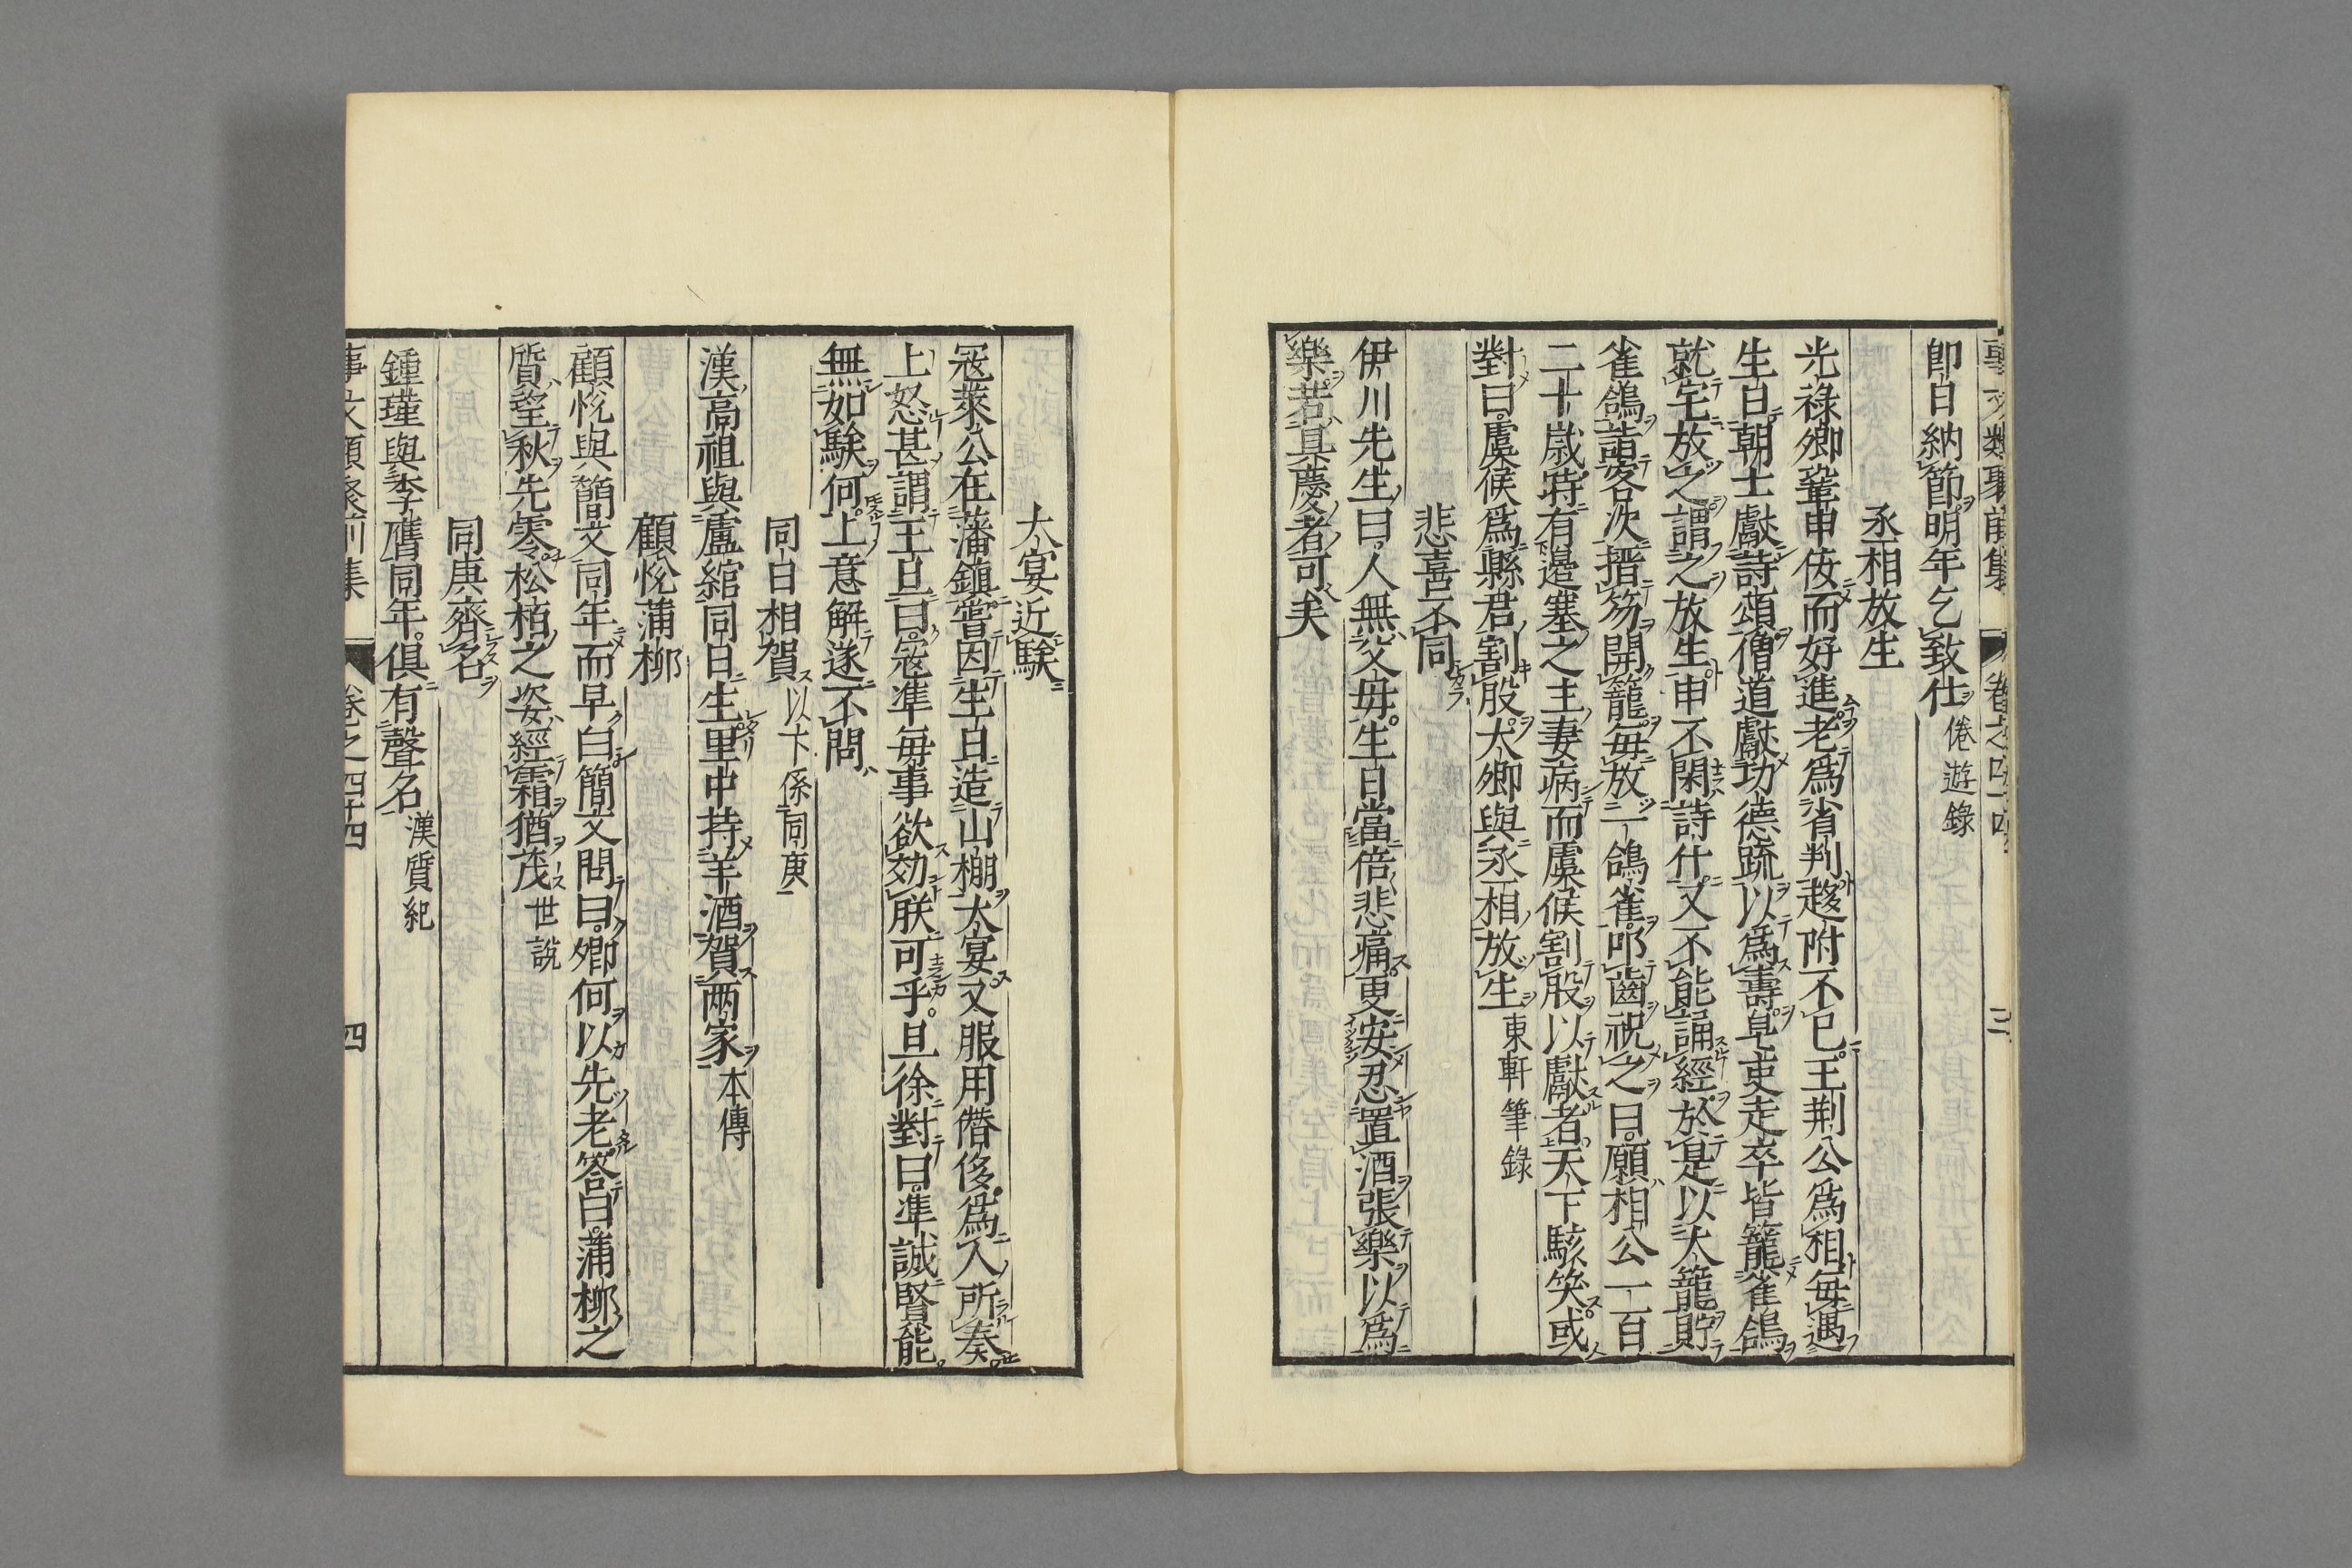 事文類聚前集 卷之四十四 三
卽日納節明年乞致仕 倦遊錄
丞相放生
光祿卿鞏申佞而好進老爲省判趍附不已王荆公爲相每遇
生日朝士獻詩頌僧道獻功德疏以爲壽皂吏走卒皆籠雀鴿
就宅放之謂之放生申不閑詩什又不能誦經於是以大籠貯
雀鴿詣客次搢笏開籠每放一鴿雀叩齒祝之曰願相公一百
二十歲時有邊塞之主妻病而虞候割股以獻者天下駭笑或
對曰虞候爲縣君割股大卿與丞相放生 東軒筆錄
悲喜不同
伊川先生曰人無父母生日當倍悲痛更安忍置酒張樂以爲
樂若具慶者可矣
大宴近騃
寇萊公在藩鎮嘗因生日造山棚大宴又服用僭侈爲人所奏
上怒甚謂王旦曰寇準每事欲効朕可乎旦徐對曰準誠賢能
無如騃何上意解遂不問
同日相賀 以下係同庚
漢高祖與盧綰同日生里中持羊酒賀兩家 本傳
顧悅蒲柳
顧悅與簡文同年而早白簡文問曰卿何以先老答曰蒲柳之
質望秋先零松栢之姿經霜猶茂 世說
同庚齊名
鍾瑾與李膺同年俱有聲名 漢質紀
事文類聚前集 卷之四十四 四